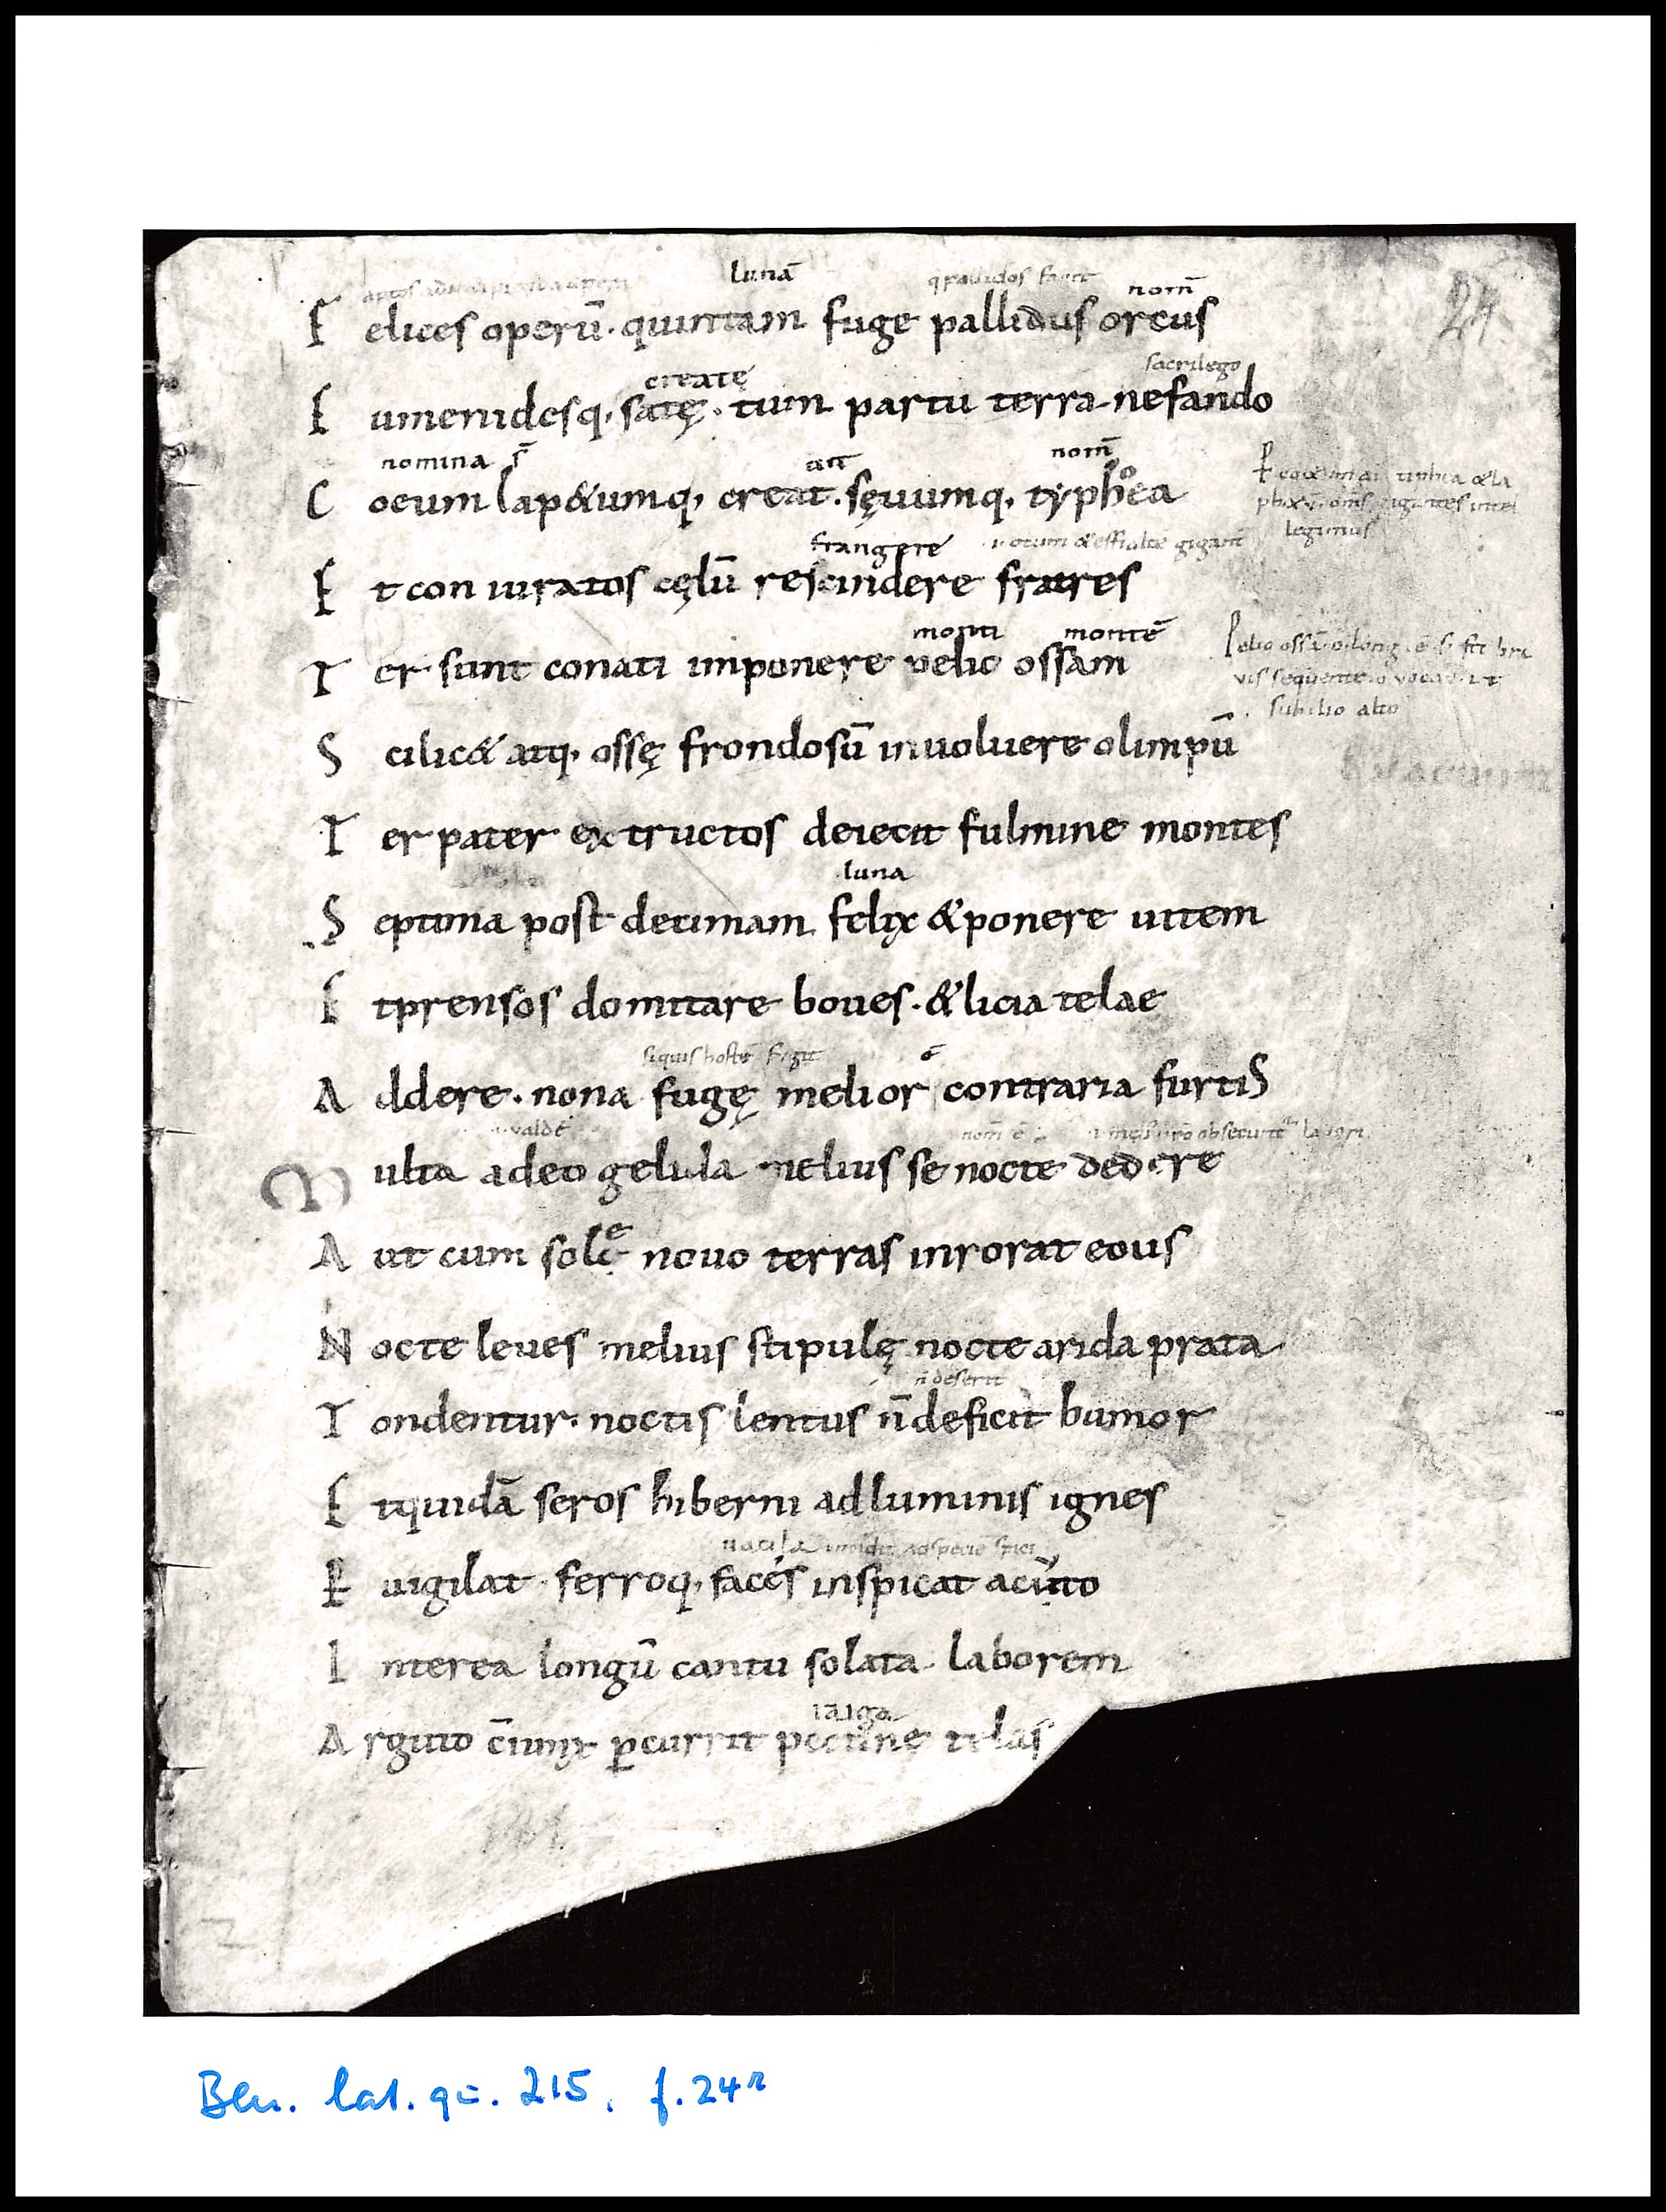 lunā
nom̄
24
F elices operū · quintam fuge pallidus orcus
sacrilego
createę
E umenidesq, satę · tum partu terra nefando
nomina
nom̄
C oeum lap&umq, creat · sęuumq, typhoea
legimus
frangere
E t con iuratos cęlū rescindere fratres
monti montē
T er sunt conati imponere pelio ossam
subilio alto
S cilic& atq, ossę frondosū inuoluere olimpū
T er pater extructos deiecit fulmine montes
luna
S eptima post decimam felix & ponere uitem
E t prensos domitare boues · & licia telae
ē
A ddere · nona fugę melior contraria furtis
valde
M ulta adeo gelida melius se nocte dedere
A ut cum sole nouo terras inrorat eous
N octe leues melius stipulę nocte arida prata
n̄ deserit
T ondentur · noctis lentus n̄ deficit humor
E t quidā seros hiberni ad luminis ignes
P uigilat · ferroq, faces inspicat acuto
I nterea longū cantu solata laborem
A rguto c̄iunx p̲currit pectine telas
Ber. lat. qu. 215, f. 24r